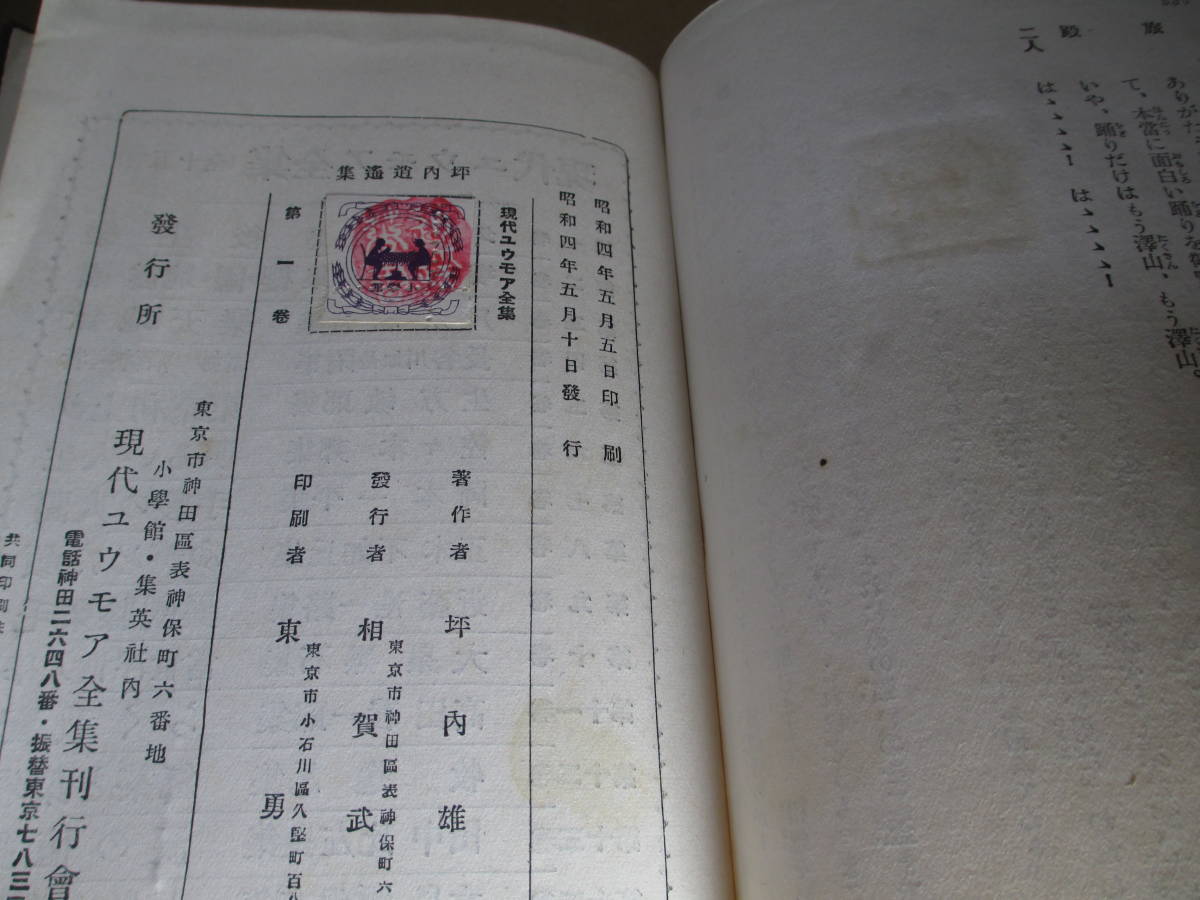 旅
ありがたう
て、本當に面白い踊りを
殿
いや、踊りだけはもう澤山、もう澤山。
二人
はゝゝゝ！ はゝゝゝ！
昭和四年五月五日印刷
昭和四年五月十日發行
現代ユウモア全集
坪内逍遙集
第一卷
著作者 坪内雄
東京市神田區表神保町六
發行者 相賀武
東京市小石川區久堅町百八
印刷者 東勇
發行所
東京市神田區表神保町六番地
小學館・集英社内
現代ユウモア全集刊行會
電話神田二六四八番・振替東京七八三
共同印刷